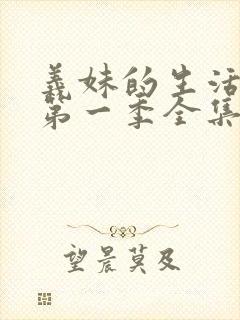 義妹的生活
第一季全集
望晨莫及